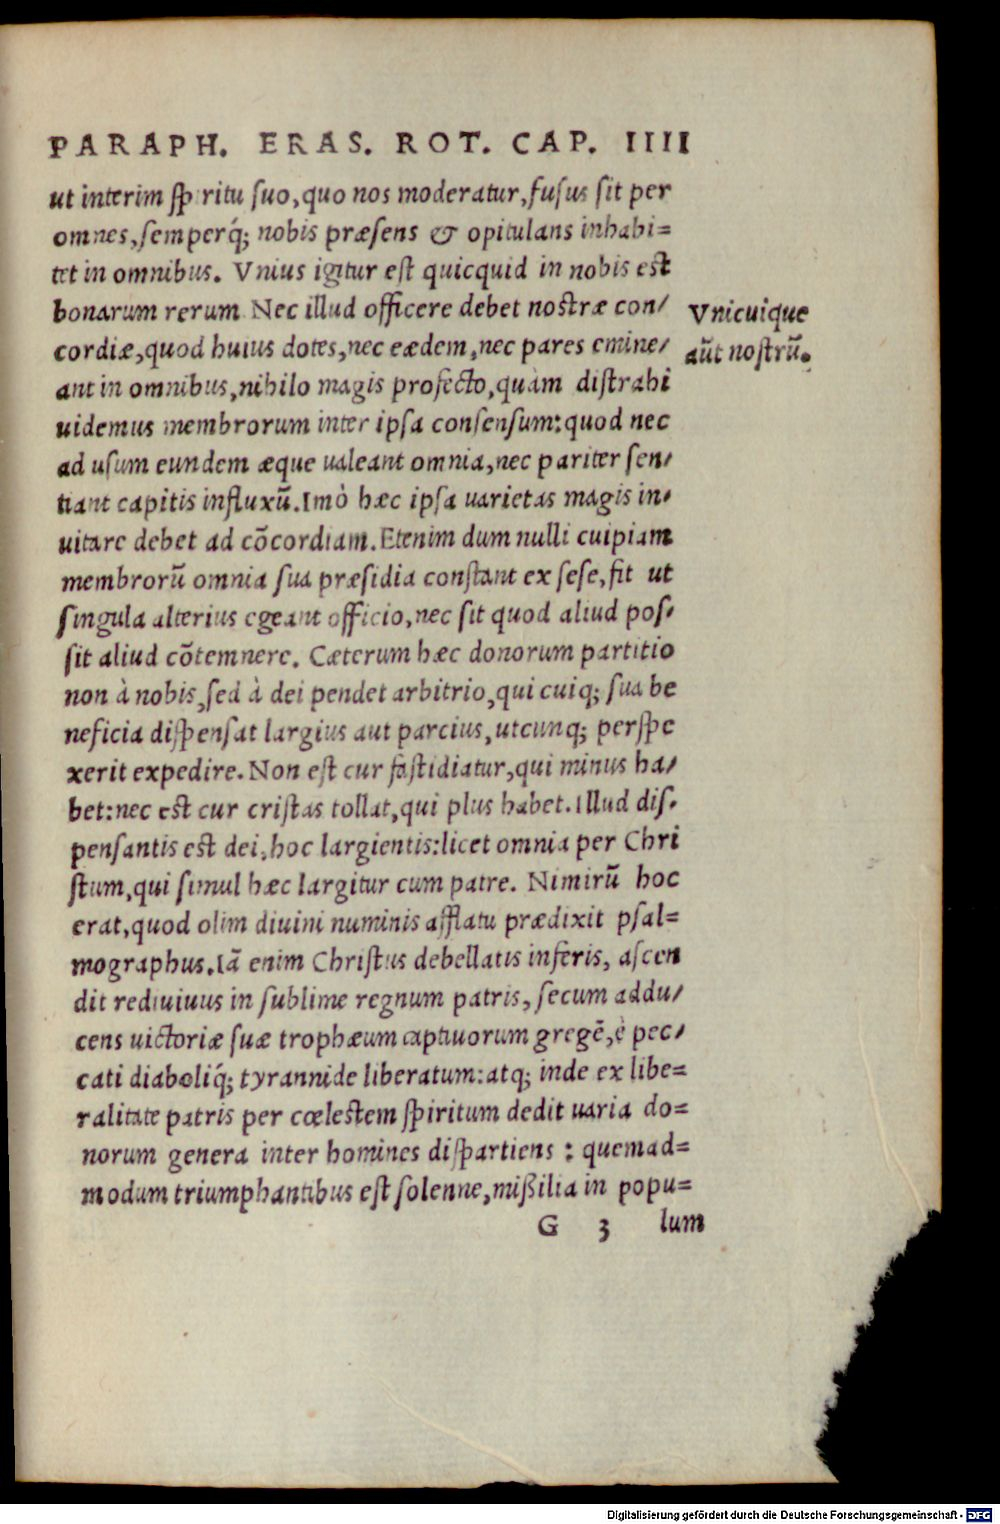 PARAPH. ERAS. ROT. CAP. IIII
ut interim spiritu suo, quo nos moderatur, fusus sit per
omnes, semperq́; nobis præsens & opitulans inhabi=
tet in omnibus. Vnius igitur est quicquid in nobis est
bonarum rerum. Nec illud officere debet nostræ con/
cordiæ, quod huius dotes, nec eædem, nec pares emine/
ant in omnibus, nihilo magis profecto, quàm distrahi
uidemus membrorum inter ipsa consensum: quod nec
ad usum eundem æque ualeant omnia, nec pariter sen/
tiant capitis influxũ. Imò hæc ipsa uarietas magis in/
uitare debet ad cõcordiam. Etenim dum nulli cuipiam
membrorũ omnia sua præsidia constant ex sese, fit ut
singula alterius egeant officio, nec sit quod aliud pos/
sit aliud cõtemnere. Cæterum hæc donorum partitio
non à nobis, sed à dei pendet arbitrio, qui cuiq; sua be
neficia dispensat largius aut parcius, utcunq; perspe
xerit expedire. Non est cur fastidiatur, qui minus ha/
bet: nec est cur cristas tollat, qui plus habet. Illud dis/
pensantis est dei, hoc largientis: licet omnia per Chri
stum, qui simul hæc largitur cum patre. Nimirũ hoc
erat, quod olim diuini numinis afflatu prædixit psal=
mographus. Iã enim Christus debellatis inferis, ascen
dit rediuiuus in sublime regnum patris, secum addu/
cens uictoriæ suæ trophæum captiuorum gregẽ, è pec/
cati diaboliq́; tyrannide liberatum: atq; inde ex libe=
ralitate patris per cœlestem spiritum dedit uaria do=
norum genera inter homines dispartiens : quemad=
modum triumphantibus est solenne, mißilia in popu=
G 3 lum
Vnicuique
aũt nostrũ.
Digitalisierung gefördert durch die Deutsche Forschungsgemeinschaft - DFG